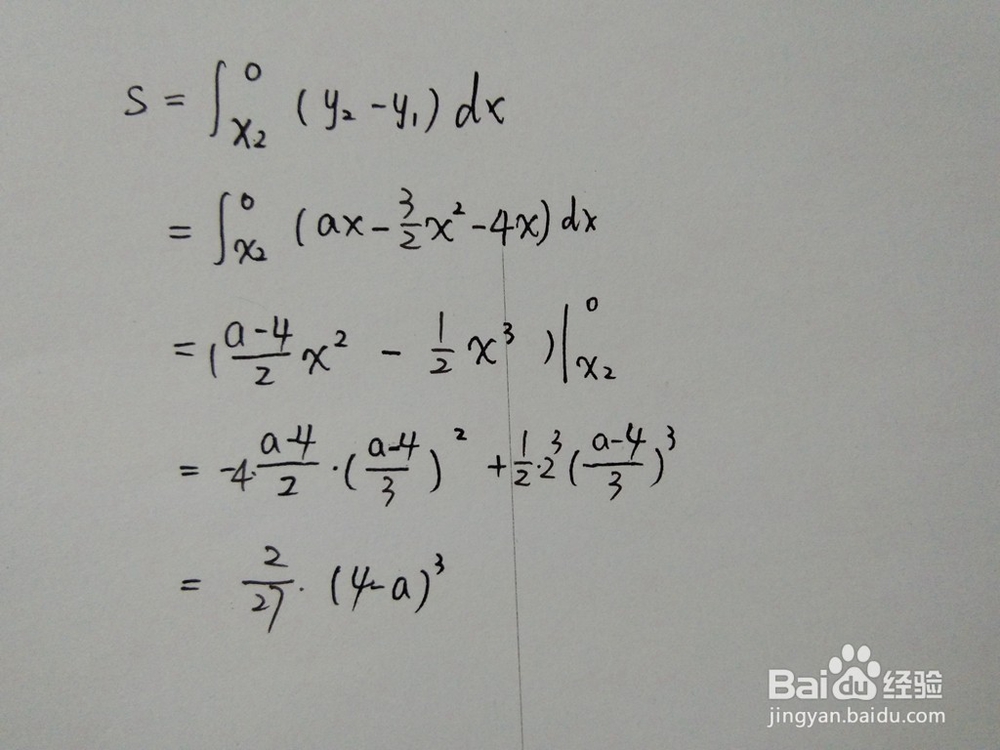 S = ∫_{x₂}^{0} (y₂ - y₁) dx
= ∫_{x₂}^{0} (ax - \frac{3}{2}x² - 4x) dx
= (\frac{a-4}{2} x² - \frac{1}{2} x³ ) |_{x₂}^{0}
= -4·\frac{a-4}{2} · (\frac{a-4}{3})² + \frac{1}{2}·2³ (\frac{a-4}{3})³
= \frac{2}{27} · (4-a)³
Baidu 经验
jingyan.baidu.com